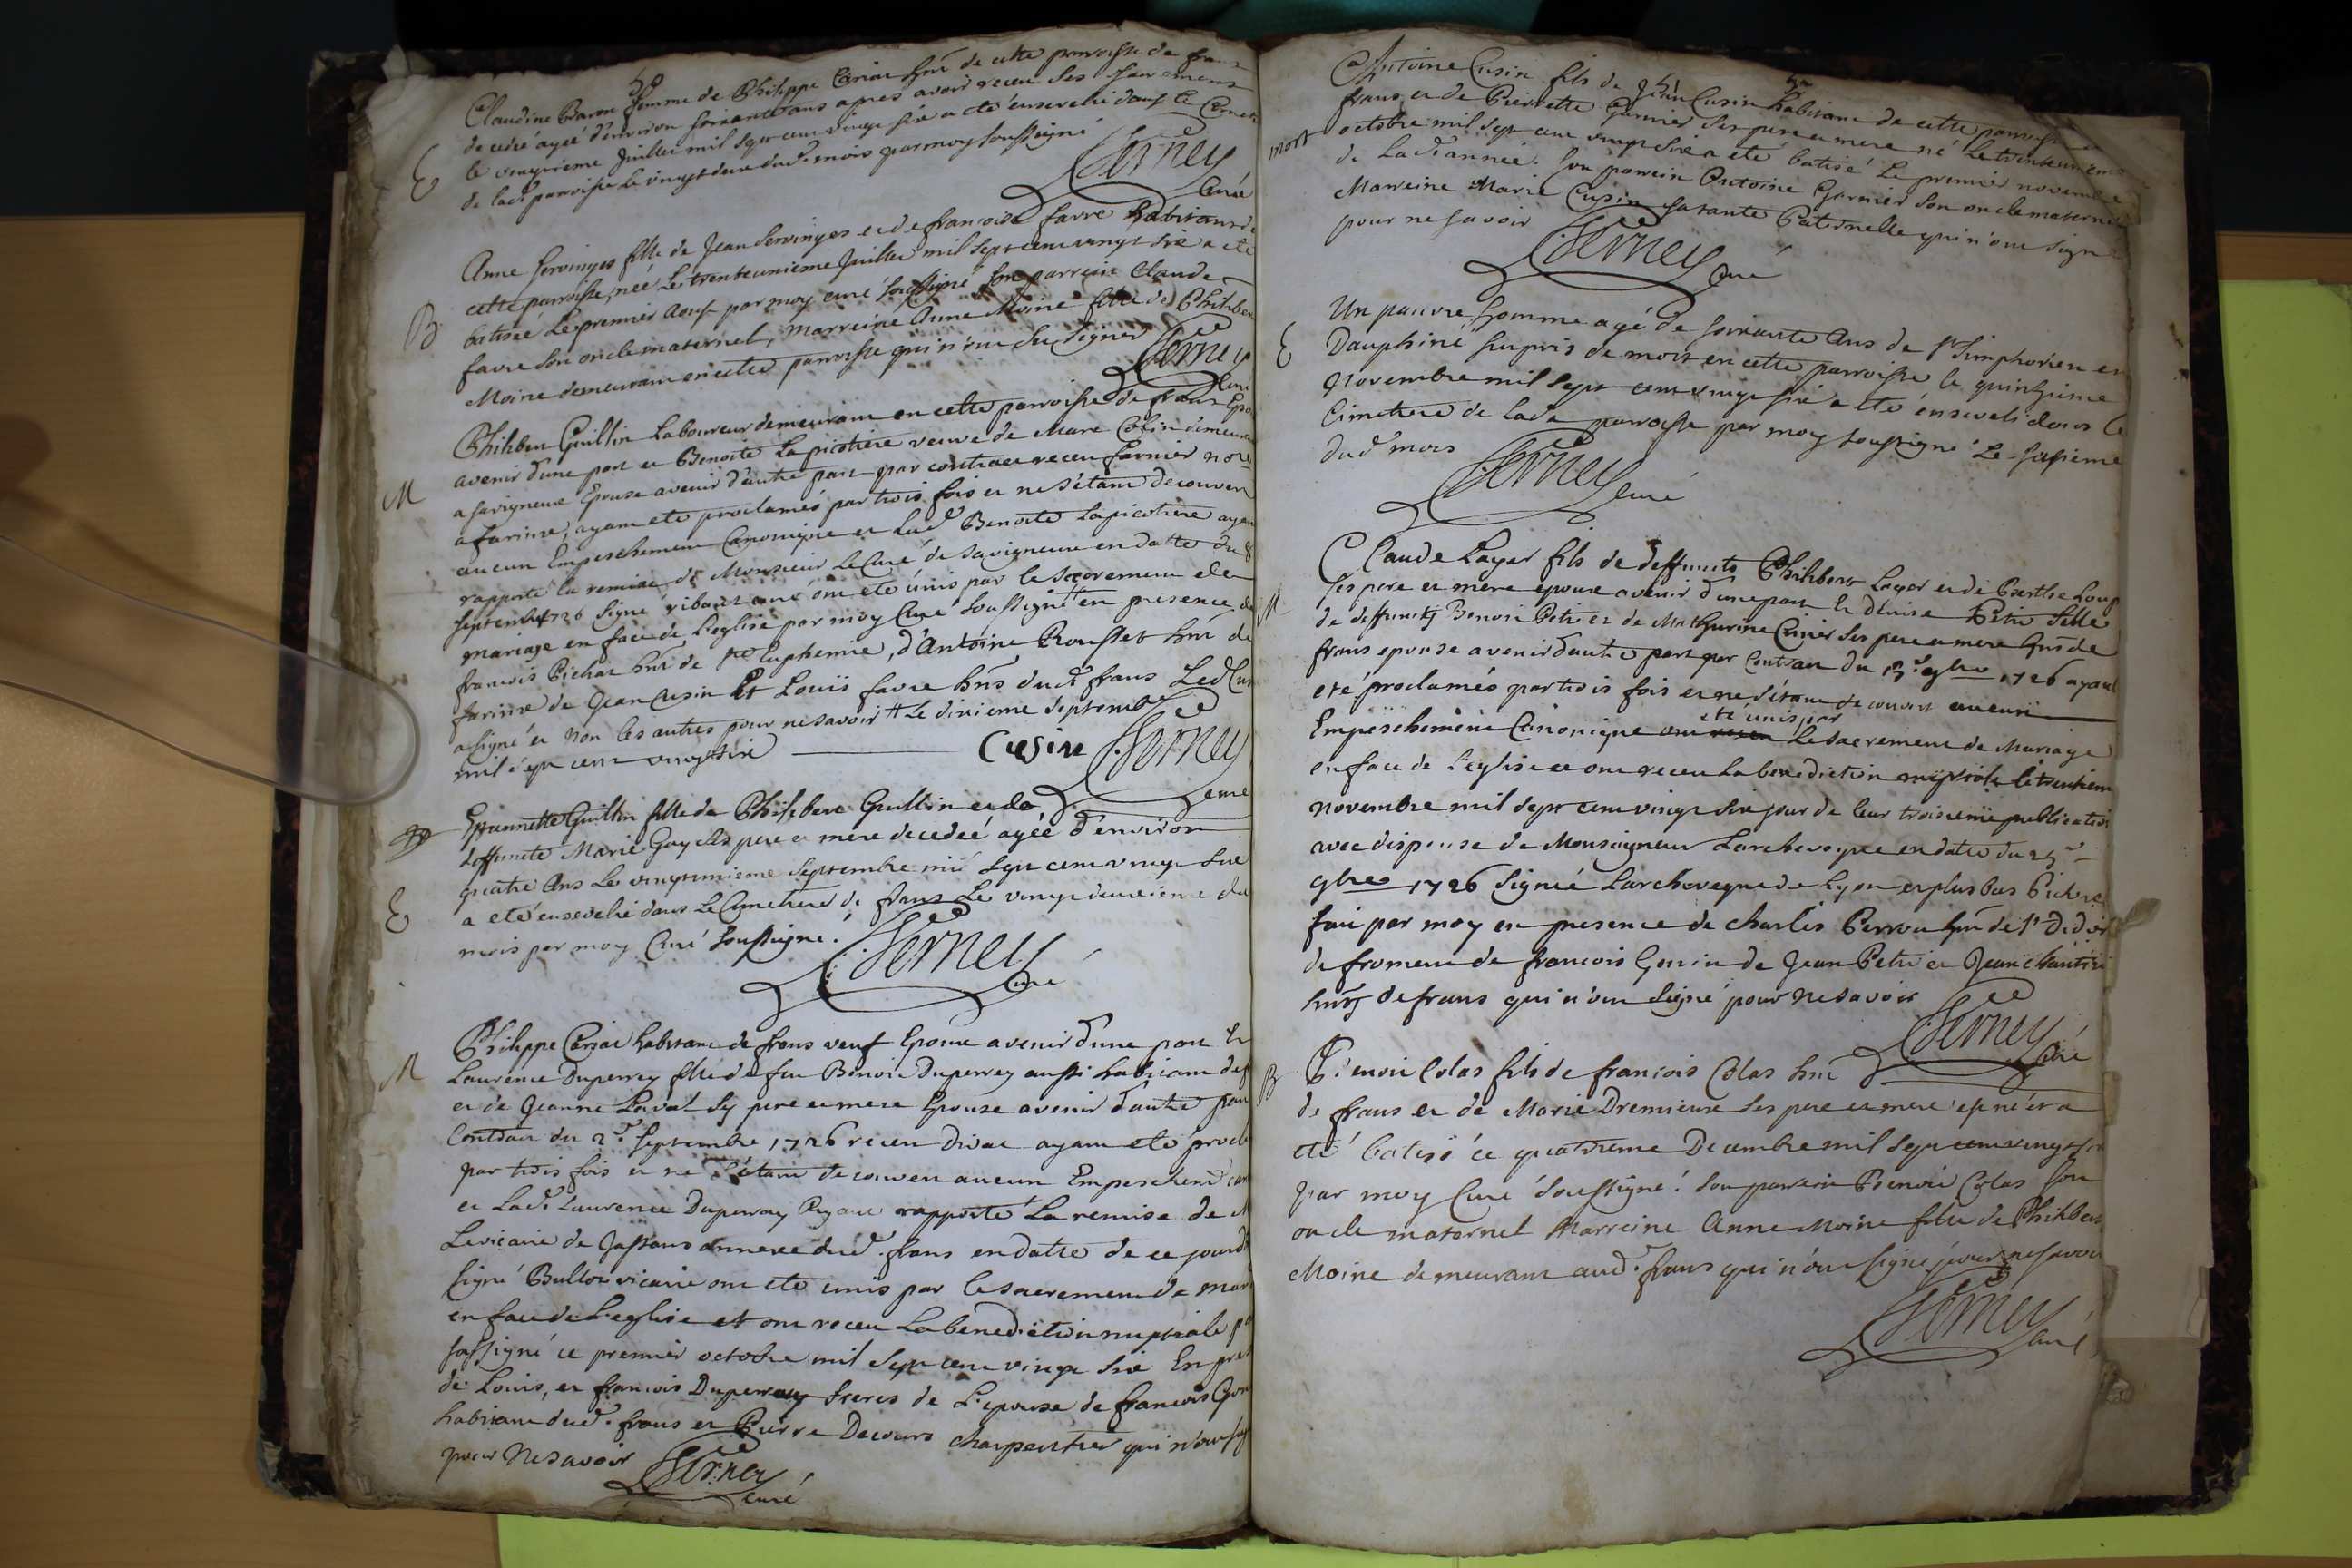 Claudine Baron femme de Philippe Carjat hnt de cette parroisse de frans
de cedée agée d'environ soixante ans apres avoir receu les sacremens
le vingtieme Juillet mil sept cent vingt six a eté ensevelie dans le
de lade parroisse le vingt deux dud. mois par moy soussigné
E
curé
Anne Servinges fille de Jean Servinges et de francoise favre habitans de
cette parroisse, née Le trente unieme Juillet mil sept cent vingt six a eté
B
batisée Le premier Aoust par moy curé soussigné son parrein Claude
favre son oncle maternel, marreine Anne Moine fille de Philibert
Moine demeurant en cette parroisse qui n'ont sçu signer
curé
Philibert Guillin Laboureur demeurant en cette parroisse de frans Epoux
avenir d'une part et Benoite Lapicotiere veuve de Marc Colin demeurant
M
a savigneux Epouse avenir d'autre part par contract receu farnier notre
a fareins, ayant eté proclamés par trois fois et ne s'étant decouvert
aucun Empeschement Canonique et lade Benoite Lapicotiere ayant
rapporté la remise de Monsieur Le Curé de Savigneux en datte du 8
septembre 1726 signé ribaut curé ont eté unis par le sacrement de
mariage en face de L'eglise par moy Curé soussigné # en presence de
francois Pichat hnt de ste Euphemie, d'Antoine Rousset hnt de
fareins de Jean Cusin Et Louis favre hns dud. frans Led Cusin
a signé et non les autres pour ne savoir # Le dixieme septembre
mil sept cent vingt six
Cusin
curé
Jeannette Guillin fille de Philibert Guillin et de
deffuncte Marie Guy ses pere et mere decedeé agée d'environ
quatre Ans Le vingt unieme septembre mil sept cent vingt six
E
a eté ensevelie dans Le Cimetiere de frans Le vingt deuxieme du
mois par moy Curé soussigné.
curé
Philippe Carjat habitant de frans veuf Epoux avenir d'une part Et
M
Laurence Duperrey fille de feu Benoit Duperrey aussi habitant de f
et de Jeanne Laval ses pere et mere Epouse avenir d'autre part
Contract du 2e. septembre 1726 receu Divat ayant eté procla
par trois fois et ne s'étant decouvert aucun Empeschent can
et Lade. Laurence Duperrey Ayant rapporté La remise de M
Le vicaire de Jassans annexe dud. frans en datte de ce jourd
signé Bulloz vicaire ont eté unis par le sacrement de mari
en face de L'eglise et ont receu La benediction nuptiale p
soussigné ce premier octobre mil sept cent vingt six En pres
de Louis, et francois Duperrey freres de L'epouse de francois Gon
habitant dud. frans et Pierre Decours charpentier qui n'ont sig
pour Ne savoir
curé
Antoine Cusin fils de Jean Cusin habitant de cette parroisse de
frans et de Pierrette Garnier ses pere et mere né Le trente unieme
mort
octobre mil sept cent vingt six a eté batisé Le premier novembre
de Lade année. son parrein Antoine Garnier son oncle maternel
Marreine Marie Cusin sa tante Paternelle qui n'ont signé
pour ne savoir
curé
Un pauvre homme agé de soixante Ans de st Simphorien en
E
Dauphiné surpris de mort en cette parroisse le quinzieme
Novembre mil sept cent vingt six a eté enseveli dans Le
Cimetiere de Lade parroisse par moy soussigné Le seizieme
dud mois
curé
Claude Layer fils de deffuncts Philibert Layer et de Berthe Loup
ses pere et mere epoux avenir d'une part Et Denise Petit fille
M
de deffuncts Benoit Petit et de Mathurine Crinier ses pere et mere hns de
frans epouse avenir d'autre part par Contract du 13e 9bre 1726 ayant
eté proclamés par trois fois et ne s'étant decouvert aucun
eté unis par
Empeschement Canonique ont Le sacrement de Mariage
en face de L'eglise et ont receu La benediction nuptiale le trentiem
novembre mil sept cent vingt six jour de leur troisieme publication
avec dispense de Monseigneur L'archeveque en datte du 25e
9bre 1726 signé L'archeveque de Lyon et plus bas
fait par moy en presence de charles Perrou hnt de st Didier
de froment de francois Gonin de Jean Petit et Jean
hnts de frans qui n'ont signé pour ne savoir
curé
Benoit Colas fils de francois Colas hnt
B
de frans et de Marie Dremieux ses pere et mere est né et a
eté batisé ce quatrieme Decembre mil sept cent vingt six
par moy Curé soussigné. son parrein Benoit Colas son
oncle maternel Marreine Anne Moine fille de Philibert
Moine demeurant aud. frans qui n'ont signé pour ne savoir
curé